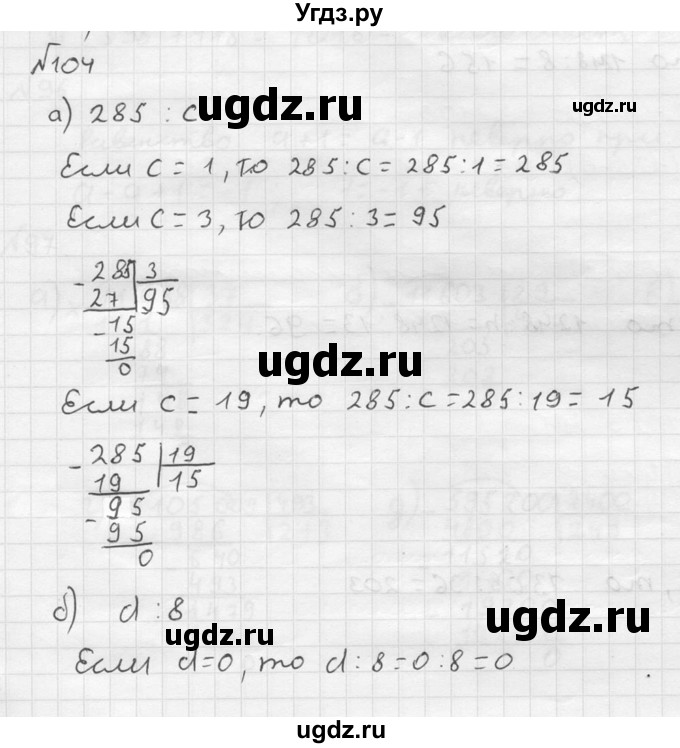 Угдз.ру
№104
а) 285 : c
ugdz.ru
Если c = 1, то 285 : c = 285 : 1 = 285
Если c = 3, то 285 : 3 = 95
- 285 | 3
27 | 95
- 15
15
0
ugdz.ru
Если c = 19, то 285 : c = 285 : 19 = 15
- 285 | 19
19 | 15
- 95
95
0
ugdz.ru
б) d : 8
ugdz.ru
Если d = 0, то d : 8 = 0 : 8 = 0
ugdz.ru